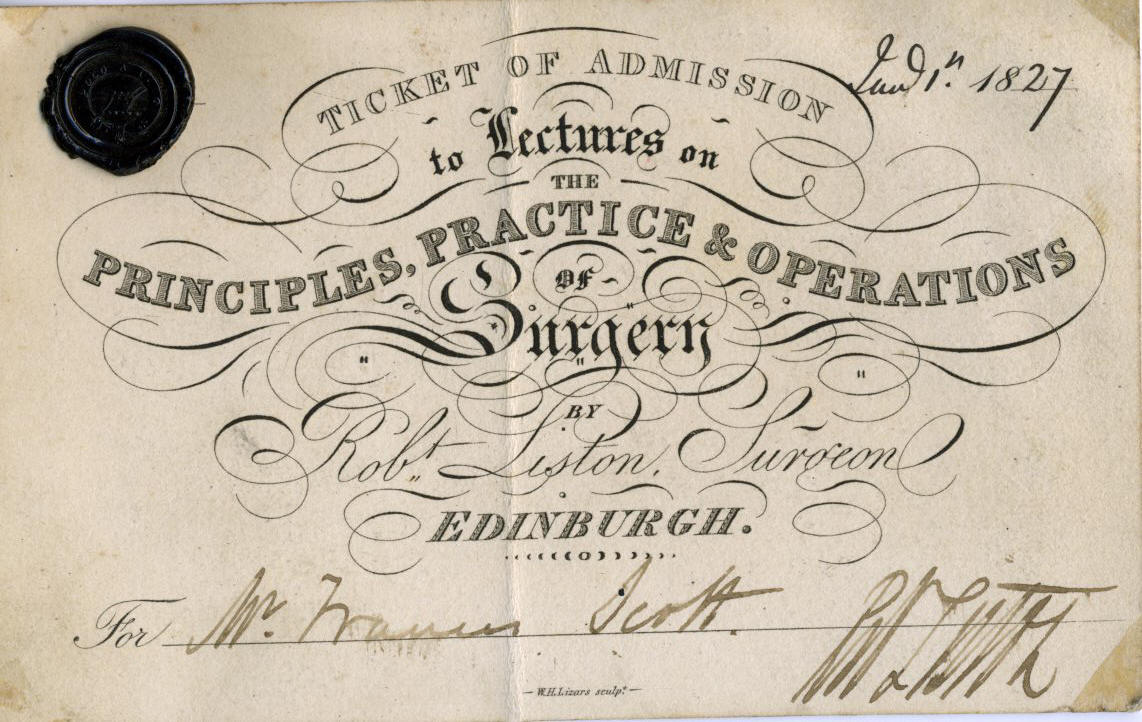 1827
TICKET OF ADMISSION
to Lectures on
THE
PRINCIPLES, PRACTICE & OPERATIONS
OF
Surgery
BY
Robt. Liston, Surgeon
EDINBURGH.
For Mr. Francis Scott.
W.H. Lizars sculpt.